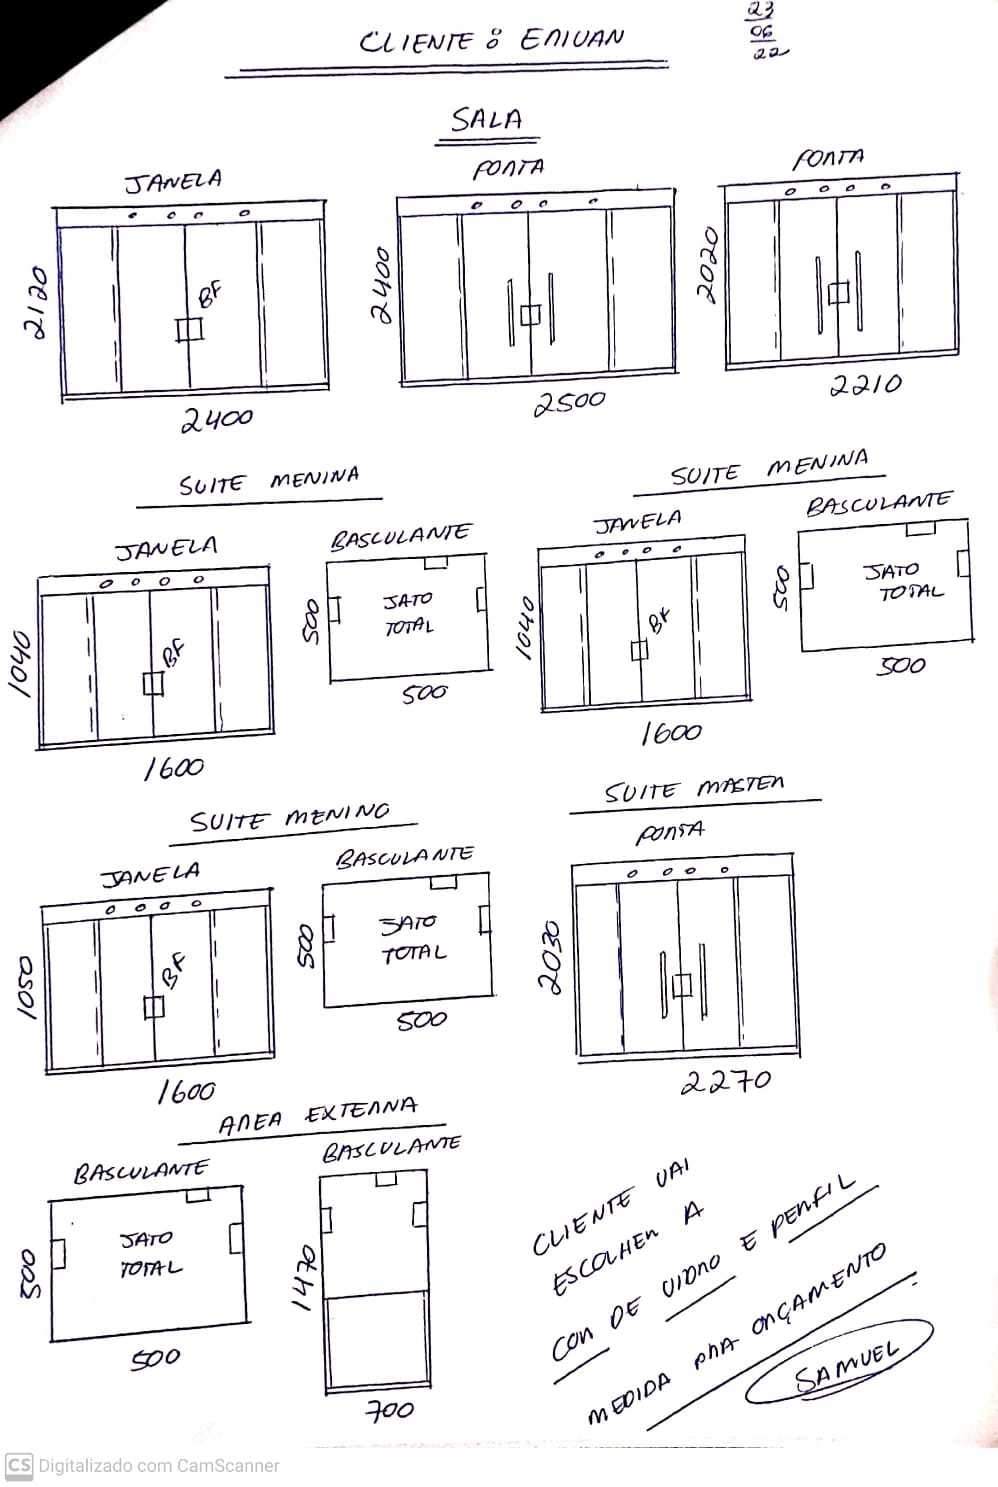 23
06
22
CLIENTE: ERIVAN
SALA
JANELA
PORTA
PORTA
2120
BF
2400
2400
2500
2020
2210
SUITE MENINA
SUITE MENINA
JANELA
BASCULANTE
JANELA
BASCULANTE
1040
BF
1600
500
JATO
TOTAL
500
1040
BF
1600
500
JATO
TOTAL
500
SUITE MENINO
SUITE MASTER
JANELA
BASCULANTE
PORTA
1050
BF
1600
500
JATO
TOTAL
500
2030
2270
AREA EXTERNA
BASCULANTE
BASCULANTE
500
JATO
TOTAL
500
1470
700
CLIENTE VAI
ESCOLHER A
COR DE VIDRO E PERFIL
MEDIDA PRA ORÇAMENTO
SAMUEL
CS Digitalizado com CamScanner